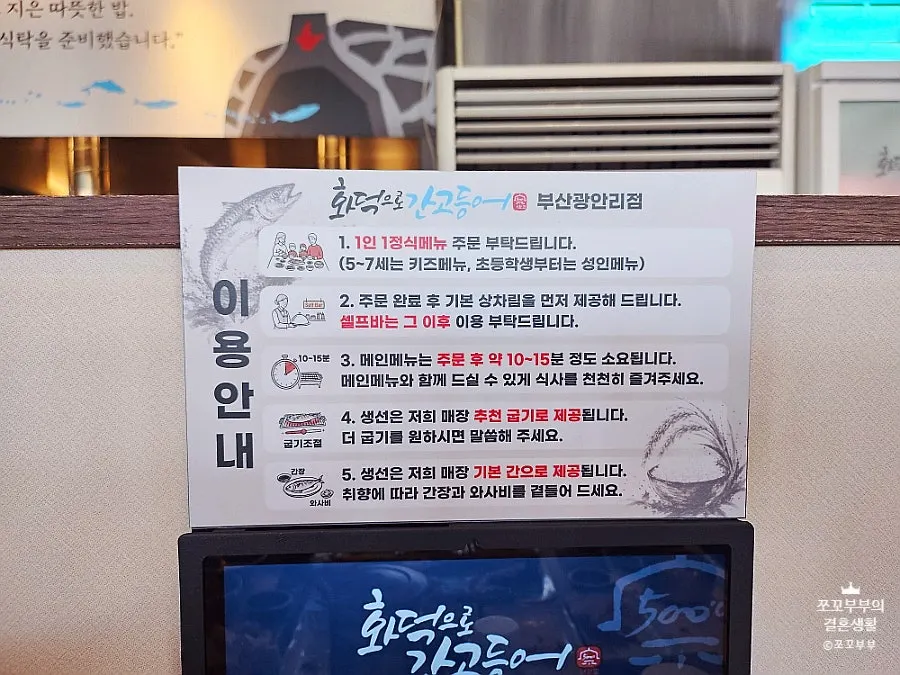 지은 따뜻한 밥.
식탁을 준비했습니다."
화덕으로 간고등어 부산광안리점
이용안내
1. 1인 1정식메뉴 주문 부탁드립니다.
(5~7세는 키즈메뉴, 초등학생부터는 성인메뉴)
Self Bar
2. 주문 완료 후 기본 상차림을 먼저 제공해 드립니다.
셀프바는 그 이후 이용 부탁드립니다.
10~15분
3. 메인메뉴는 주문 후 약 10~15분 정도 소요됩니다.
메인메뉴와 함께 드실 수 있게 식사를 천천히 즐겨주세요.
굽기조절
4. 생선은 저희 매장 추천 굽기로 제공됩니다.
더 굽기를 원하시면 말씀해 주세요.
간장
와사비
5. 생선은 저희 매장 기본 간으로 제공됩니다.
취향에 따라 간장과 와사비를 곁들어 드세요.
화덕으로
간고등어
500℃
쪼꼬부부의
결혼생활
©쪼꼬부부